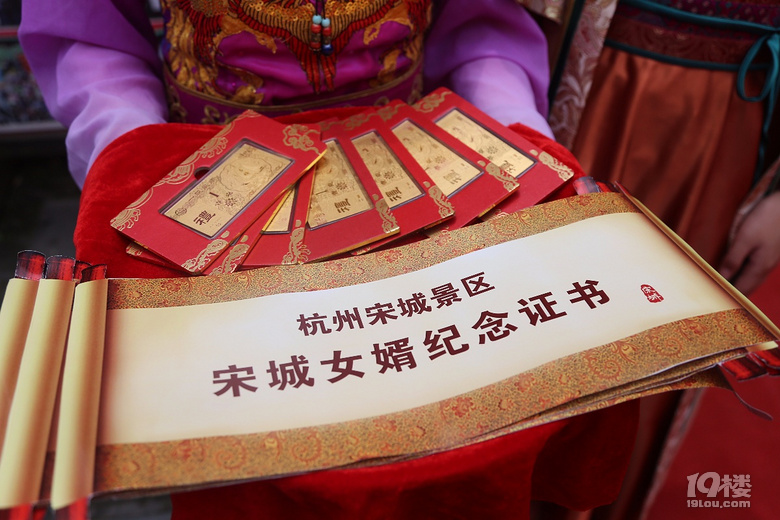 禮
禮
禮
禮
杭州宋城景区
宋城女婿纪念证书
宋城
19楼
19lou.com